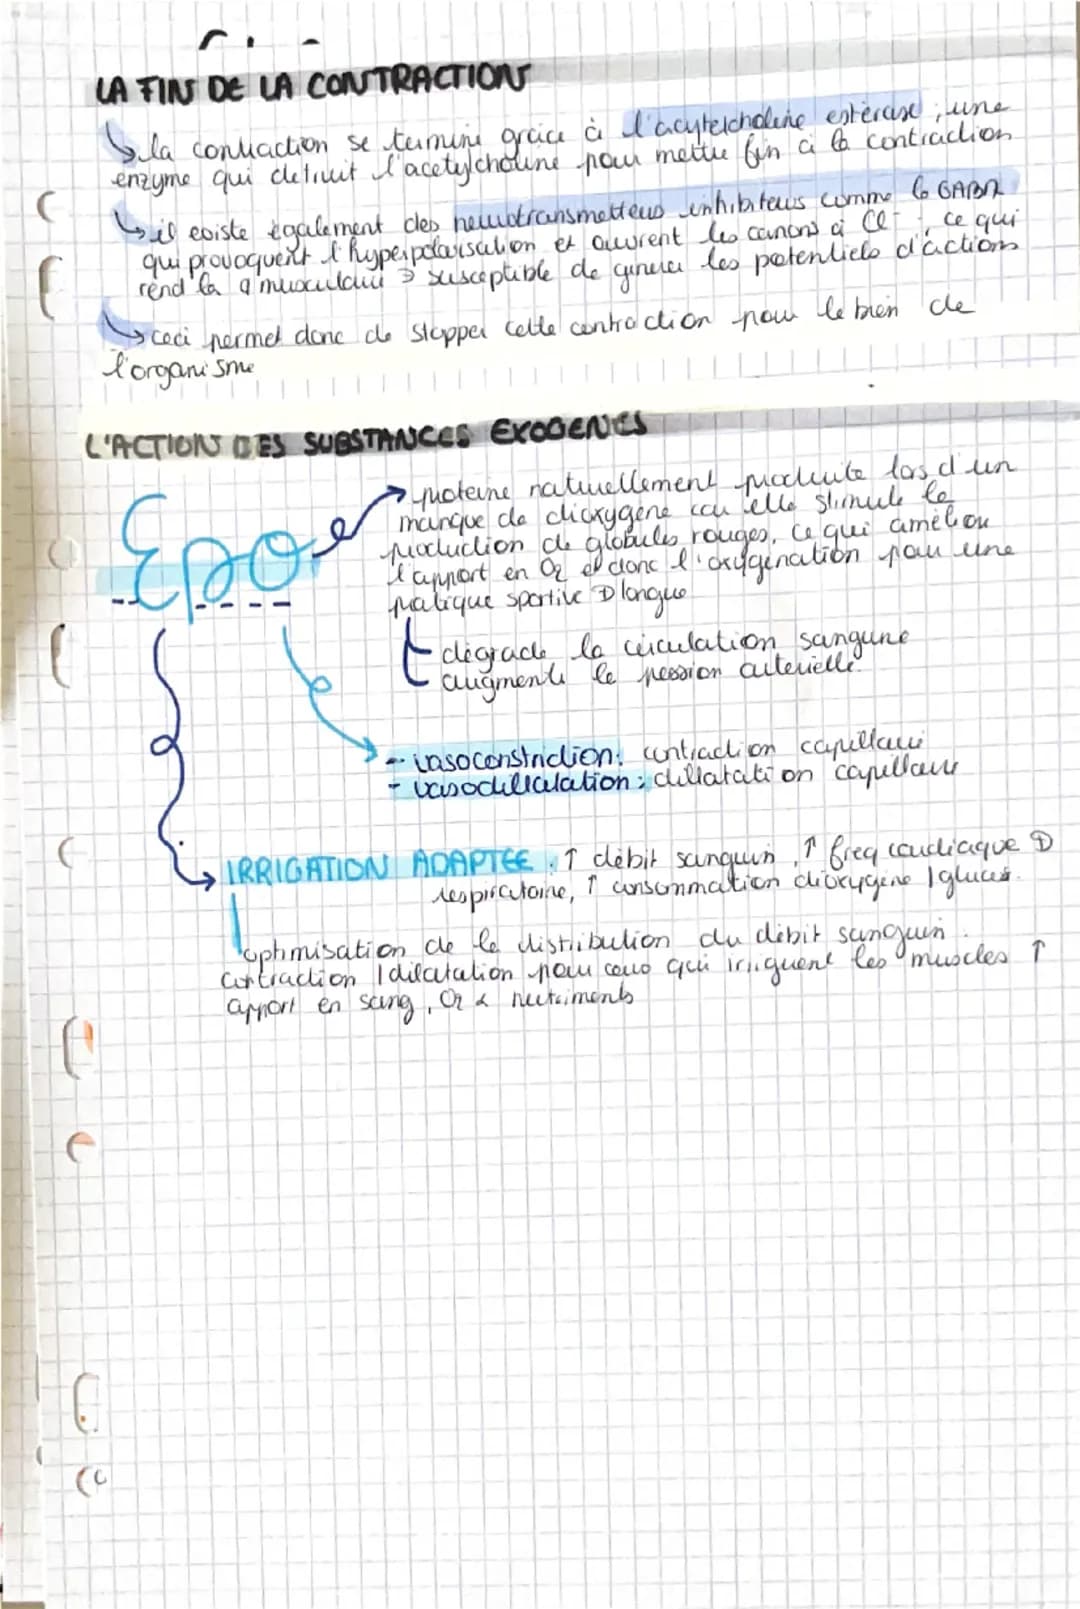 LA FIN DE LA CONTRACTION
la contraction se termine grâce à l'acytelcholine estérase ; une
enzyme qui detruit l'acetylcholine pour mettre fin à la contraction
il existe également des neurotransmetteurs inhibiteurs comme le GABA
qui provoquent l'hyperpolarisation et ouvrent les canons à Cl-, ce qui
rend la musculaire susceptible de generer les potentiels d'actions
ceci permet donc de stopper cette contraction pour le bien de
l'organisme
L'ACTION DES SUBSTANCES EXOGENES
Epo
proteine naturellement produite lors d'un
manque de dioxygène car elle stimule la
production de globules rouges, ce qui améliore
l'apport en O2 et donc l'oxygénation pour une
pratique sportive longue
dégrade la circulation sanguine
augmente la pession arterielle.
- vasoconstriction: contraction capillaire
- vasodillatation : dillatation capillaire
IRRIGATION ADAPTEE : ↑ débit sanguin, ↑ freq cardiaque
respiratoire, ↑ consommation dioxygène / glucos.
optimisation de la distribution du débit sanguin.
contraction / dilatation pour ceux qui irriguent les muscles ↑
apport en sang, O2 & nutriments